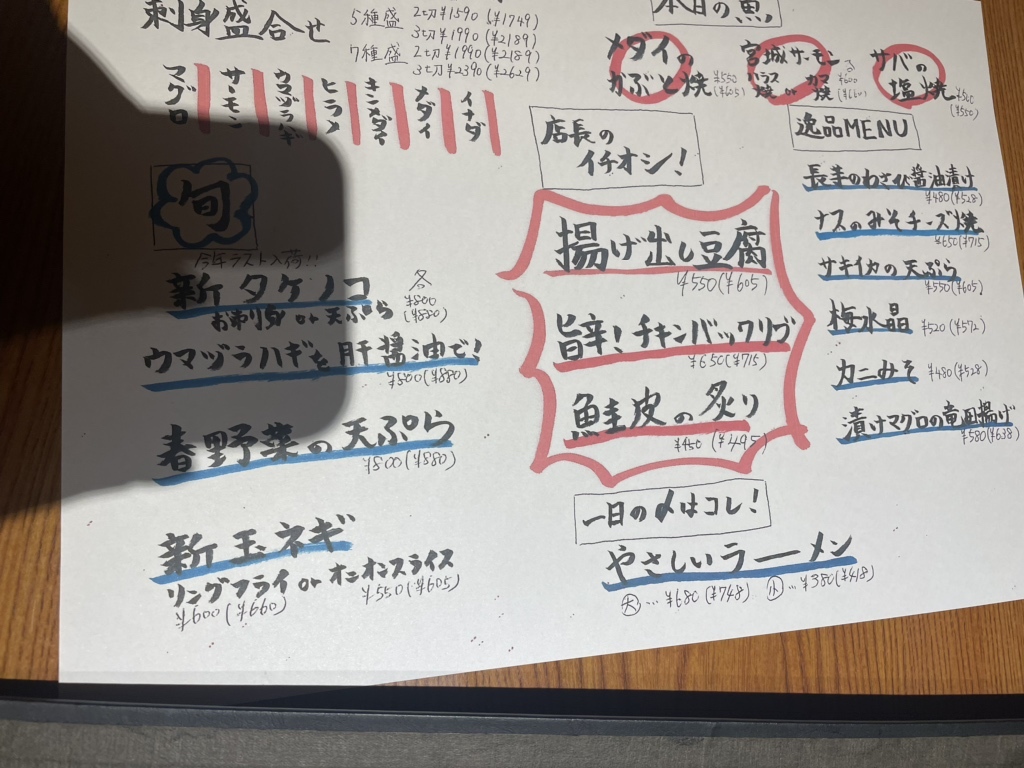 刺身盛合せ
5種盛 2切¥1590(¥1749)
3切¥1990(¥2189)
7種盛 2切¥1990(¥2189)
3切¥2390(¥2629)
マグロ
サーモン
ウマヅラハギ
ヒラメ
キンメダイ
メダイ
イナダ
旬
今年ラスト入荷!!
新タケノコ 各
お刺身or天ぷら ¥800
(¥880)
ウマヅラハギを肝醤油で!
(¥880)
春野菜の天ぷら
¥800(¥880)
新玉ネギ
リングフライ or オニオンスライス
¥600(¥660) ¥550(¥605)
本日の魚
メダイの
かぶと焼 ¥550
(¥605)
宮城サーモン
ハラス焼 or カマ焼
¥600
(¥660)
サバの
塩焼 ¥500
(¥550)
店長の
イチオシ!
揚げ出し豆腐
¥550(¥605)
旨辛!チキンバックリブ
¥650(¥715)
鮭皮の炙り
¥450(¥495)
一日の〆はコレ!
やさしいラーメン
大…¥680(¥748) 小…¥380(¥418)
逸品MENU
長芋のわさび醤油漬け
¥480(¥528)
ナスのみそチーズ焼
¥650(¥715)
サキイカの天ぷら
¥550(¥605)
梅水晶 ¥520(¥572)
カニみそ ¥480(¥528)
漬けマグロの竜田揚げ
¥580(¥638)